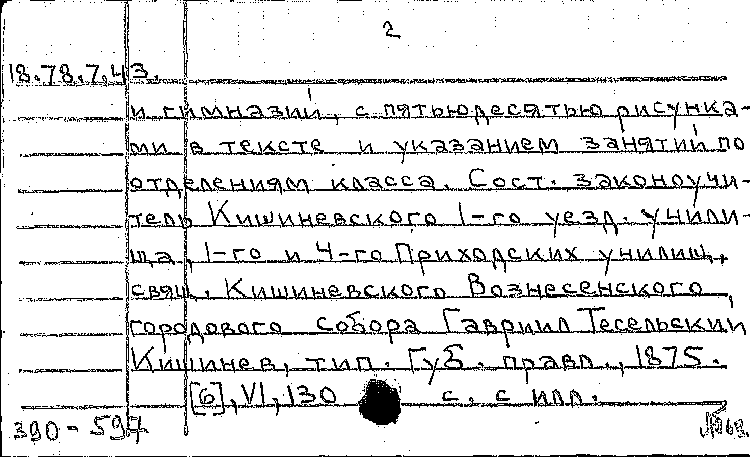 2
18.78.7.43.
и гимназий, с пятьюдесятью рисунка-
ми в тексте и указанием занятий по
отделениям класса. Сост. законоучи-
тель Кишиневского 1-го уезд. учили-
ща, 1-го и 4-го Приходских училищ,
свящ. Кишиневского Вознесенского
городового собора Гавриил Тесельский
Кишинев, тип. Губ. правл., 1875.
[6], VI, 130 с. с илл.
390-597